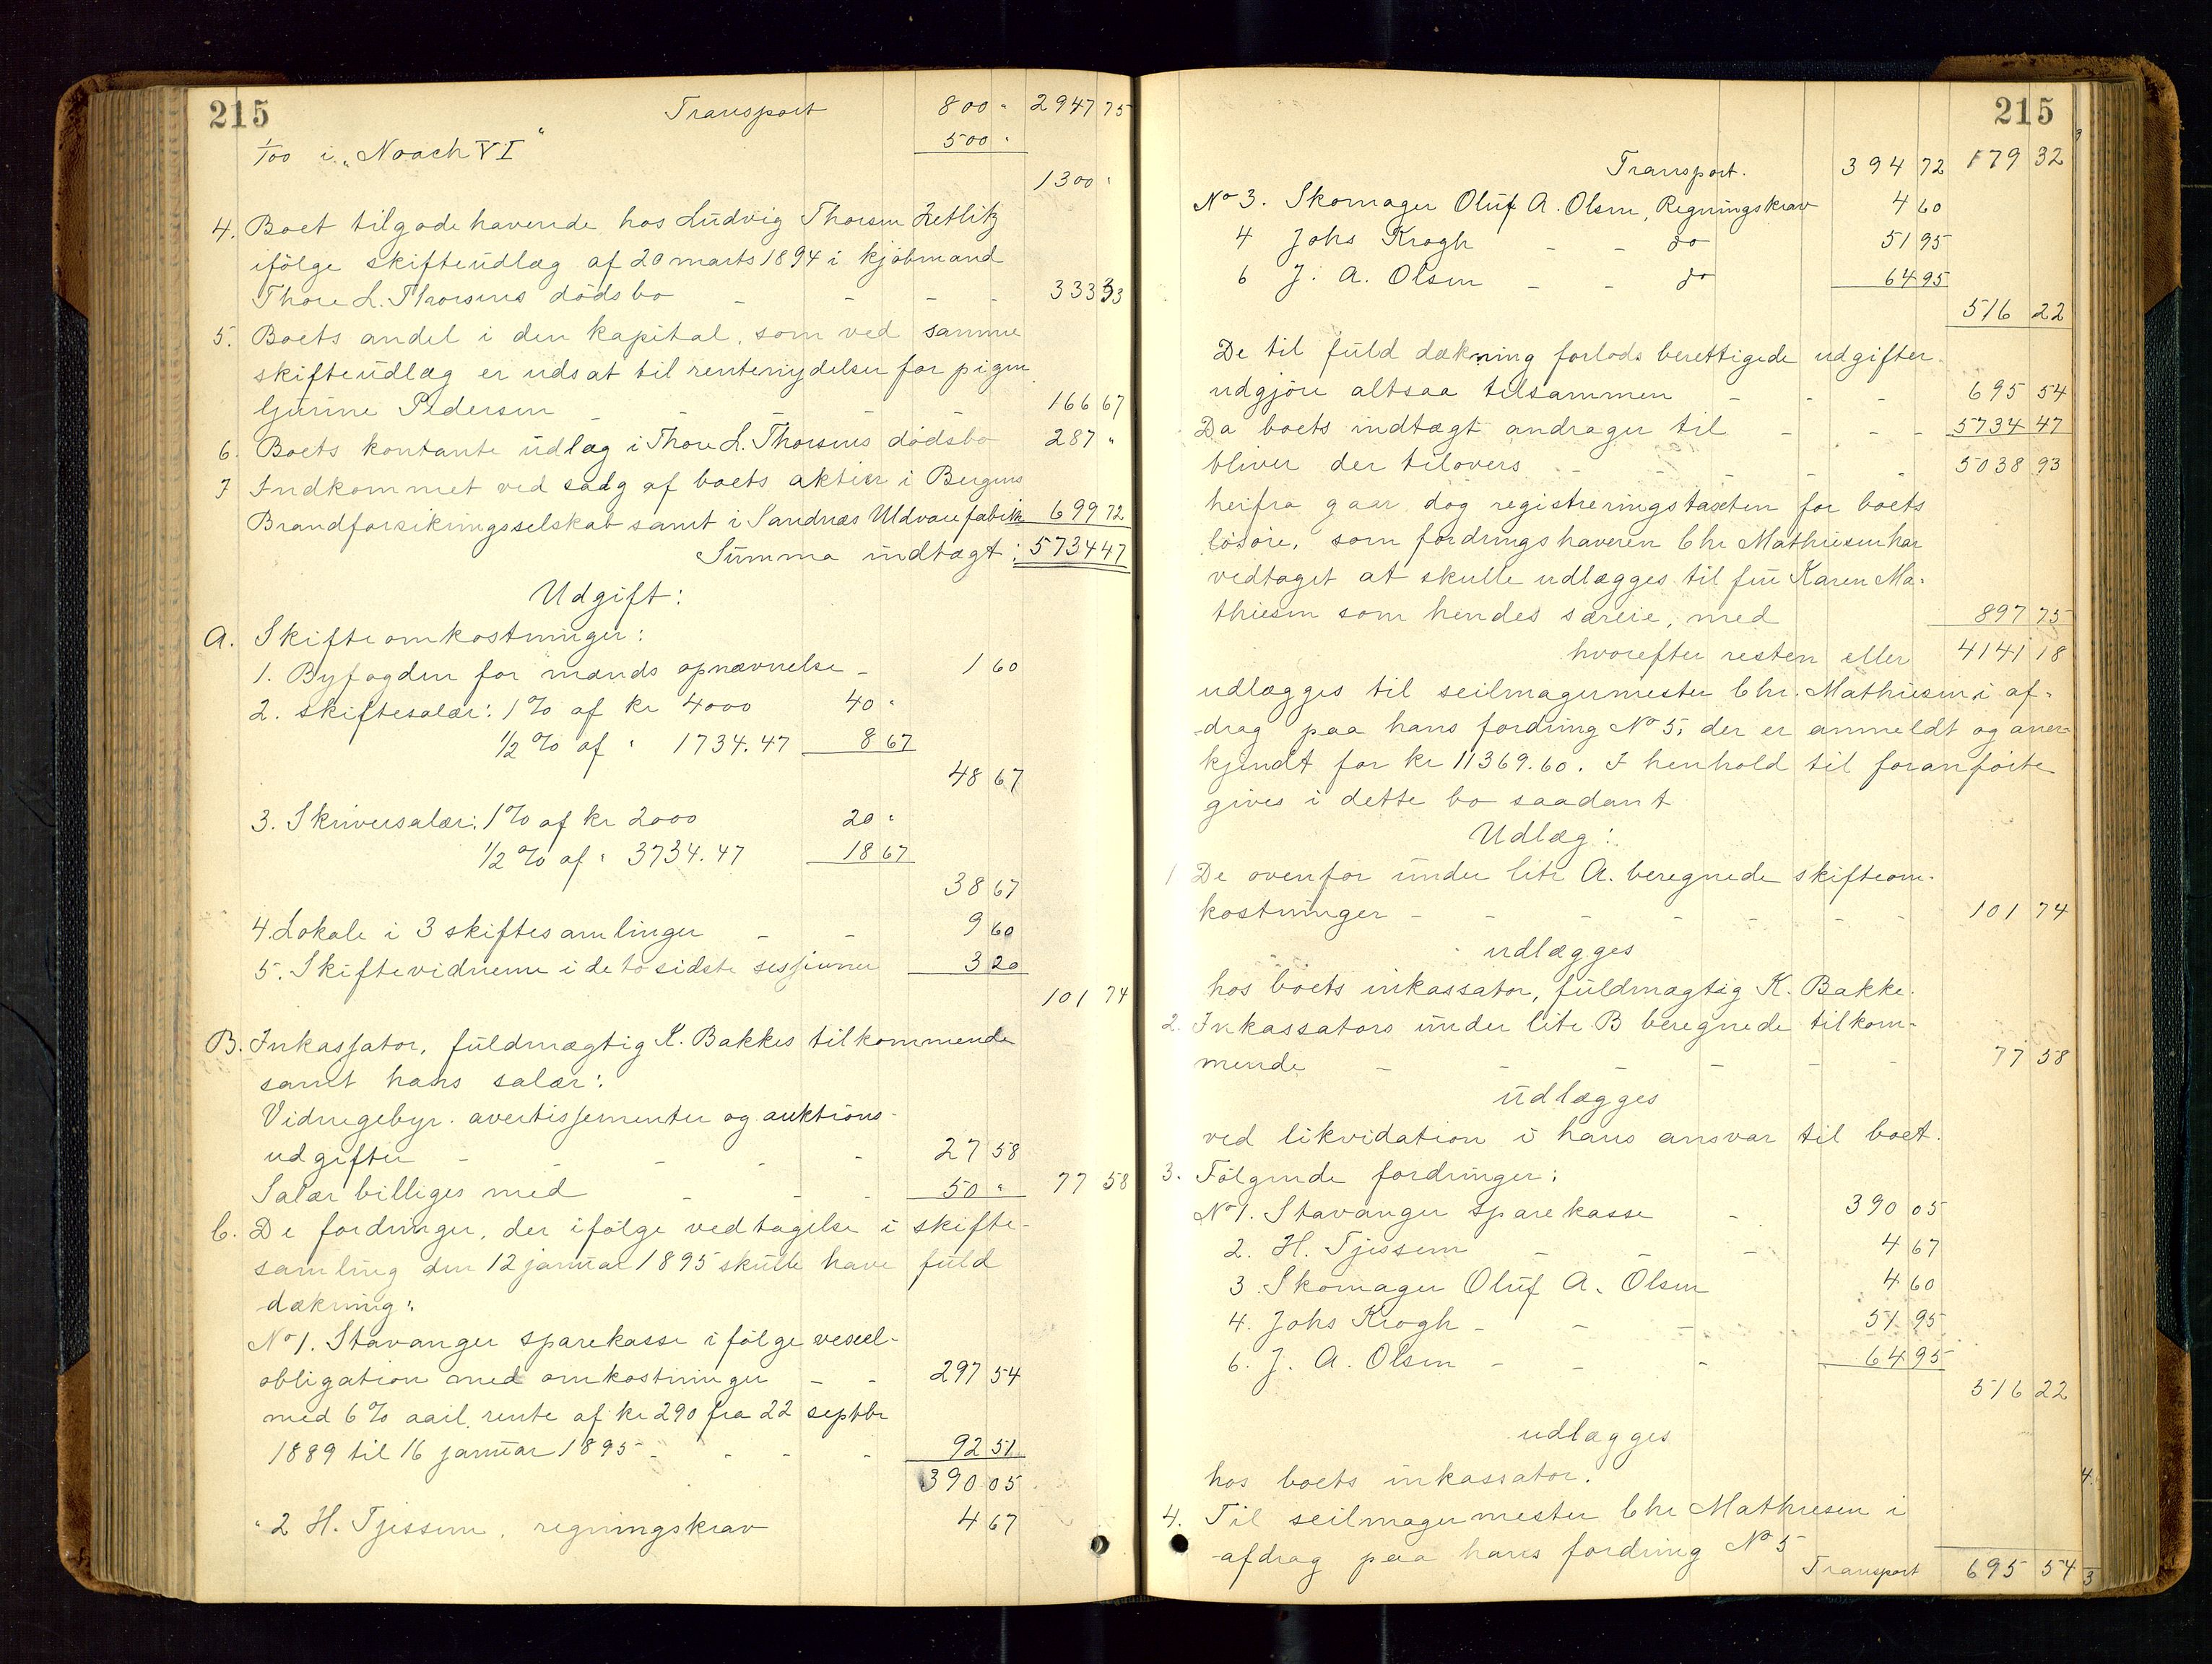 215
Transport 800 " 2947 75
1/100 i „Noach VI" 500 "
1300 "
4. Boet tilgodehavende hos Ludvig Thorsen Zetlitz
ifölge skifteudlæg af 20 marts 1894 i kjöbmand
Thore L. Thorsens dödsbo - - - - 333 33
5. Boets andel i den kapital, som ved samme
skifteudlæg er udsat til rentenydelse for pigen
Gurine Pedersen - - - - - 166 67
6. Boets kontante udlæg i Thore L. Thorsens dödsbo 287 "
7 Indkommet ved salg af boets aktier i Bergens
Brandforsikringsselskab samt i Sandnæs Uldvarefabrik 699 72
Summa indtægt: 5734 47
Udgift:
A. Skifteomkostninger:
1. Byfogden for mænds opnævnelse - 1 60
2. skiftesalær: 1% af kr 4000 40 "
1/2 % af " 1734.47 8 67
48 67
3. Skriversalær: 1% af kr 2000 20 "
1/2 % af " 3734.47 18 67
38 67
4. Lokale i 3 skiftesamlinger - - 9 60
5. Skiftevidnerne i de to sidste sessioner 3 20
101 74
B. Inkassator, fuldmægtig K. Bakkes tilkommende
samt hans salær:
Vidnegebyr. avertissementer og auktions-
udgifter - - - - - 27 58
Salær billiges med - - - 50 " 77 58
C. De fordringer, der ifölge vedtagelse i skifte-
samling den 12 januar 1895 skulle have fuld
dækning:
No 1. Stavanger sparekasse ifölge vexel-
obligation med omkostninger - - 297 54
med 6% aarl. rente af kr 290 fra 22 septbr
1889 til 16 januar 1895 - - - - 92 51
390 05
" 2 H. Tjessem, regningskrav 4 67
215
Transport. 394 72 179 32
No 3. Skomager Oluf A. Olsen, Regningskrav 4 60
4 Johs Krogh - - do 51 95
6 J. A. Olsen - - do 64 95
516 22
De til fuld dækning forlods berettigede udgifter
udgjöre altsaa tilsammen - - - 695 54
Da boets indtægt andrager til - - - 5734 47
bliver der tilovers - - - - - 5038 93
herfra gaar dog registreringstaxten for boets
lösöre, som fordringshaveren Chr Mathiesen har
vedtaget at skulle udlægges til fru Karen Ma-
thiesen som hendes særeie, med 897 75
hvorefter resten eller 4141 18
udlægges til seilmagermester Chr. Mathiesen i af-
drag paa hans fordring No 5, der er anmeldt og aner-
kjendt for kr 11369.60. I henhold til foranförte
gives i dette bo saadant
Udlæg:
1 De ovenfor under litr A. beregnede skifteom-
kostninger - - - - - - 101 74
udlægges
hos boets inkassator, fuldmægtig K. Bakke.
2. Inkassators under litr. B beregnede tilkom-
mende - - - - - - 77 58
udlægges
ved likvidation i hans ansvar til boet.
3. Fölgende fordringer:
No 1. Stavanger sparekasse - 390 05
2. H. Tjessem - - - 4 67
3 Skomager Oluf A. Olsen 4 60
4. Johs Krogh - - - 51 95
6. J. A. Olsen - - - 64 95
516 22
udlægges
hos boets inkassator.
4. Til seilmagermester Chr Mathiesen i
afdrag paa hans fordring No 5
Transport 695 54